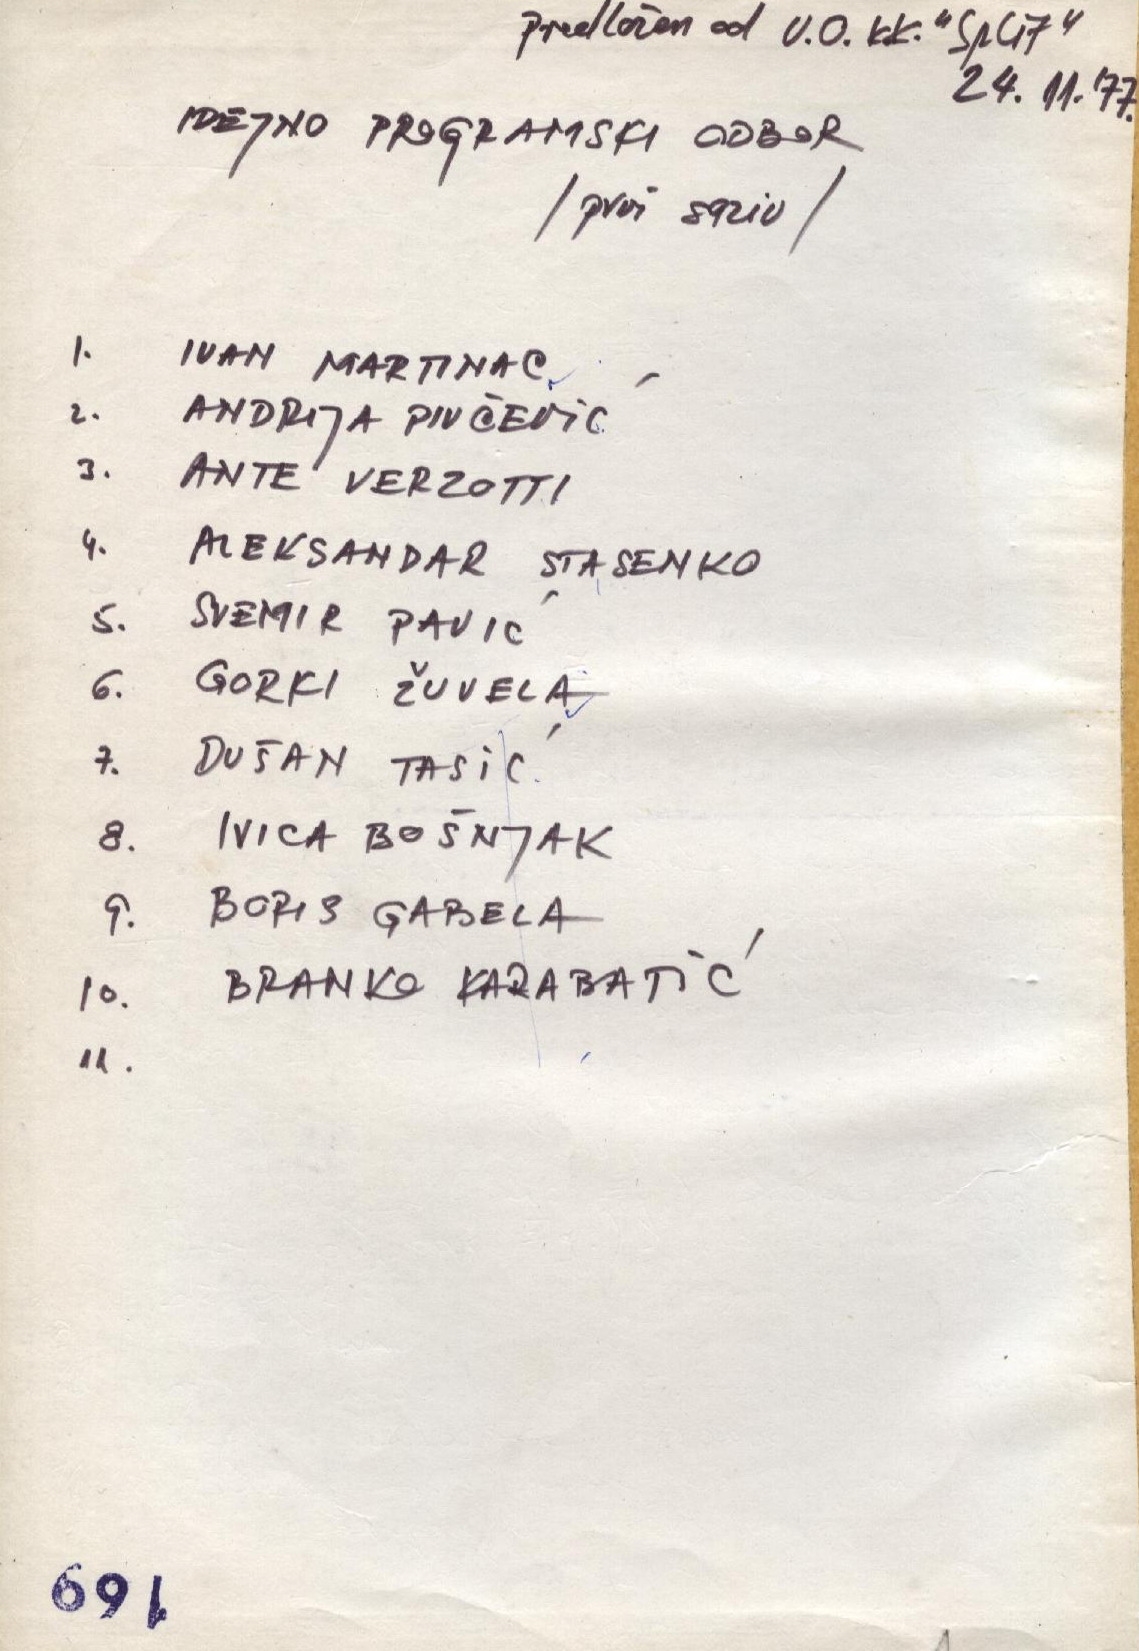 Predložen od U.O. KK. "Split"
24. 11. '77.
IDEJNO PROGRAMSKI ODBOR
/prvi saziv/
1. IVAN MARTINAC
2. ANDRIJA PIVČEVIĆ
3. ANTE VERZOTTI
4. ALEKSANDAR STASENKO
5. SVEMIR PAVIĆ
6. GORKI ŽUVELA
7. DUŠAN TASIĆ
8. IVICA BOŠNJAK
9. BORIS GABELA
10. BRANKO KARABATIĆ
11.
169